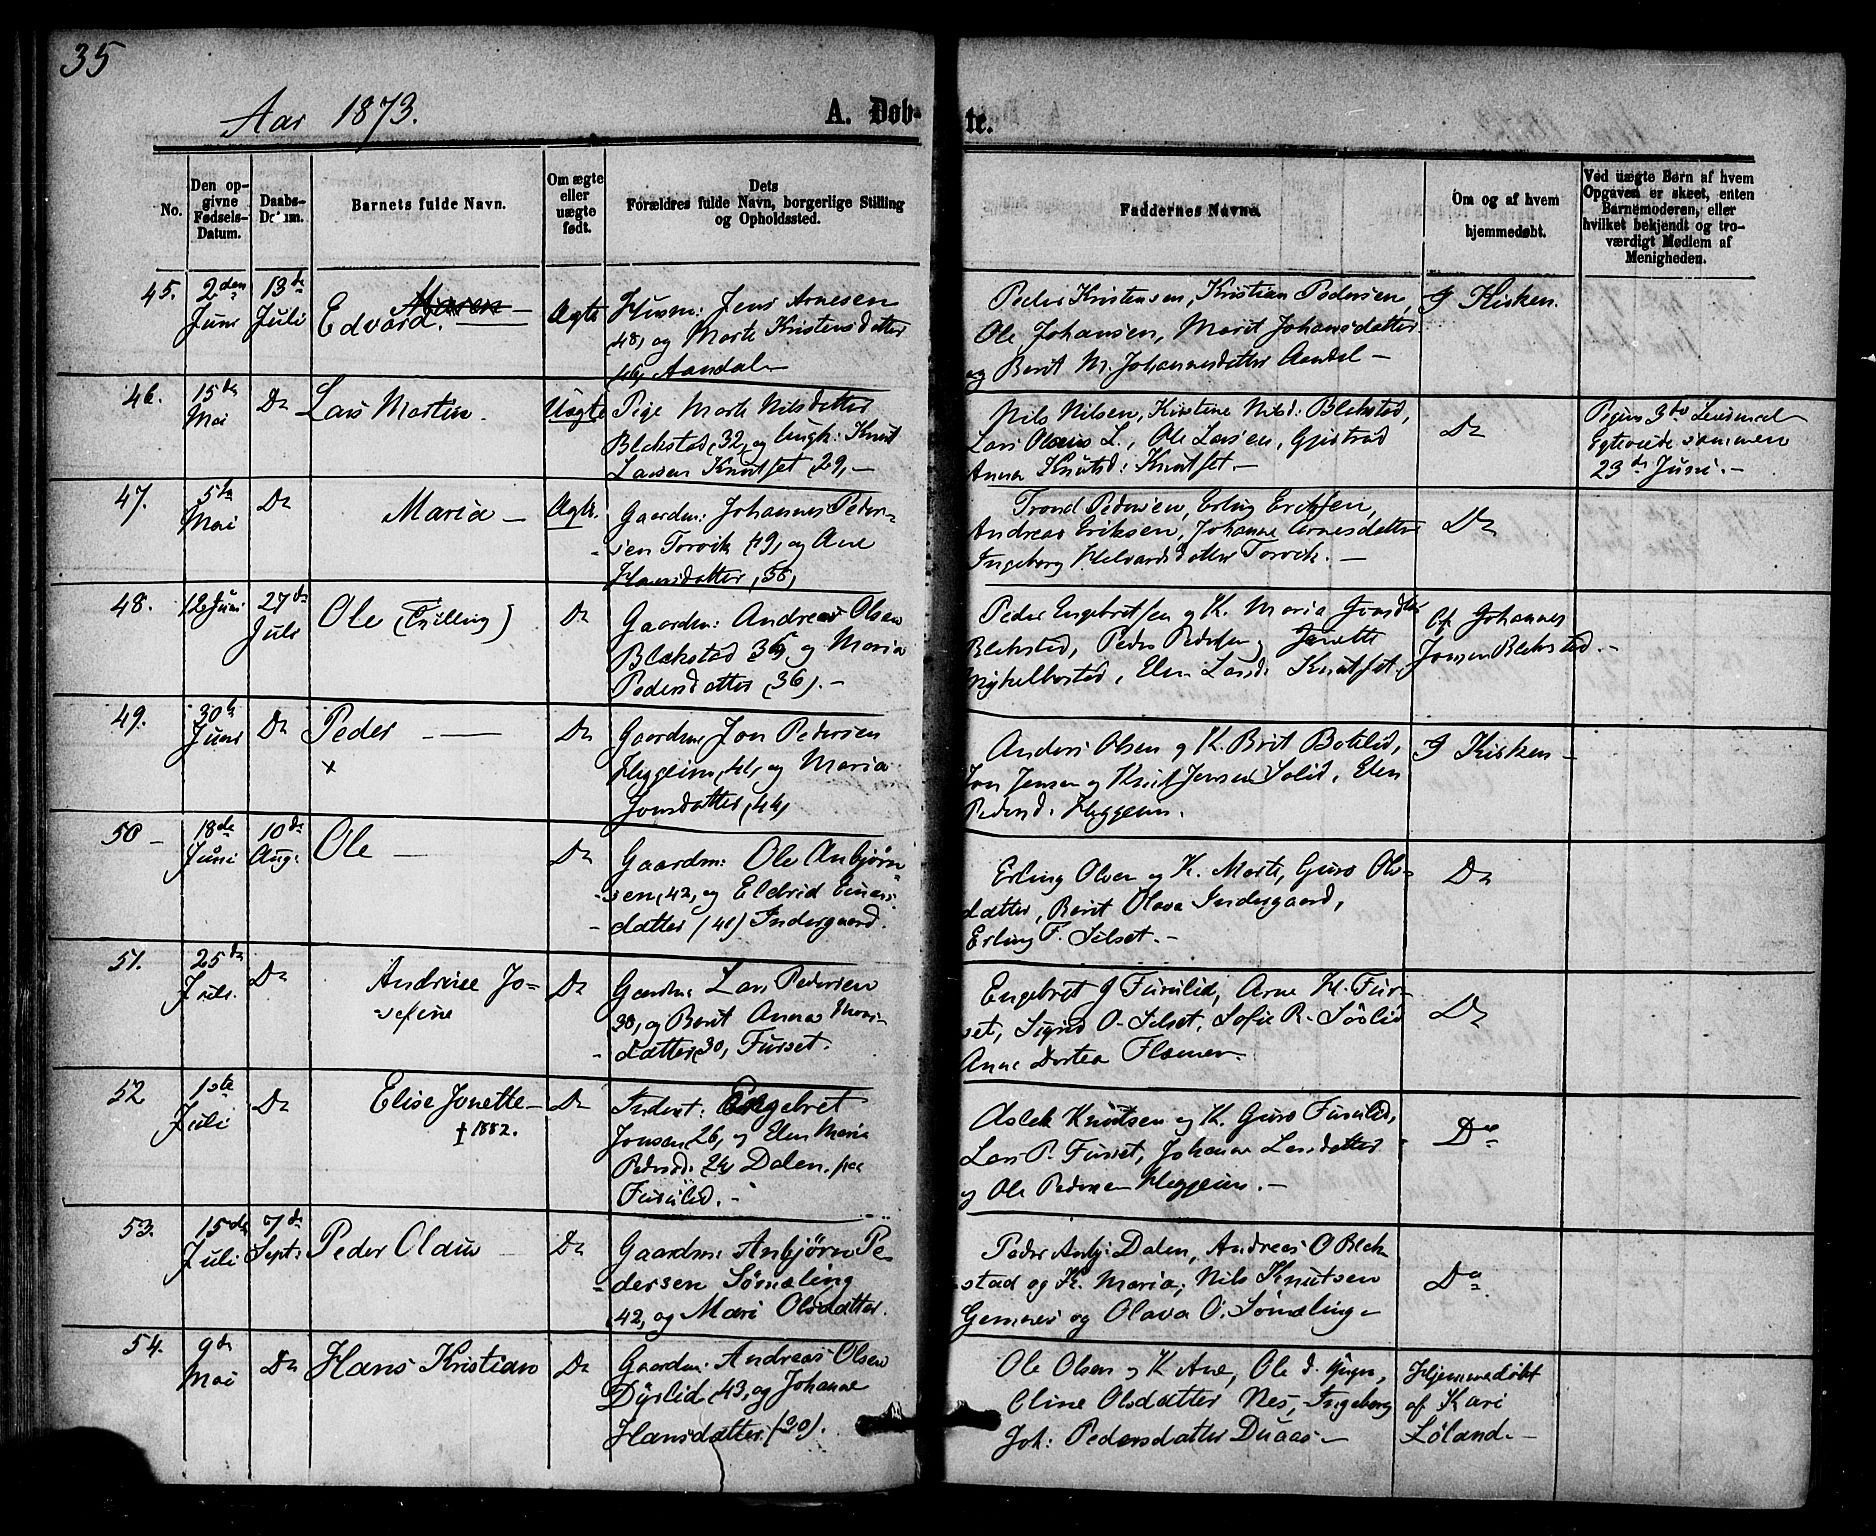 35
Aar 1873.
A. Døb-
te.
No.
Den op-
givne
Fødsels-
Datum.
Daabs-
Datum.
Barnets fulde Navn.
Om ægte
eller
uægte
født.
Dets
Forældres fulde Navn, borgerlige Stilling
og Opholdssted.
Faddernes Navne.
Om og af hvem
hjemmedøbt.
Ved uægte Børn af hvem
Opgaven er skeet, enten
Barnemoderen, eller
hvilket bekjendt og tro-
værdigt Medlem af
Menigheden.
45.
2den
Juni
13de
Juli
Maren
Edvard.
Ægte
Husm: Jens Arnesen
48, og Marte Kristensdatter
46, Aandal
Peder Kristensen, Kristian Pedersen,
Ole Johansen, Marit Johansdatter
og Berit M. Johannesdatter Aandal
I Kirken
46.
15de
Mai
Do
Lars Martin
Uægte
Pige Marte Nilsdatter
Blekstad, 32, og Ungk: Knut
Larsen Knutset 29,
Nils Nilsen, Kirstine Nilsd: Blekstad,
Lars Olsens L., Ole Larsen, Gjistad
Anna Knutsd: Knutset.
Do
Pigens 3de Leiermaal
Egteviede sammen
23de Juni.
47.
5te
Mai
Do
Maria
Ægte.
Gaardm: Johannes Peder-
sen Torvik 49, og Ane
Hansdatter,
Trond Pedersen, Erling Eriksen,
Andreas Eriksen, Johanne Arnesdatter
Ingeborg Halvardsdatter Torvik.
Do
48.
12 Juni
27de
Juli
Ole (Tvilling)
Do
Gaardm: Andreas Olsen
Blekstad 36, og Maria
Pedersdatter (36).
Peder Engebretsen og K. Maria
Blekstad, Peder Pedersen og Janette
Mykelbostad, Elen Larsd: Knutset,
af Johannes
Jonsen Blekstad.
49.
30te
Juni
Do
Peder
x
Do
Gaardm: Jon Pedersen
Heggeim, 41, og Maria
Jonsdatter, (44)
Anders Olsen og K. Brit Botelid,
Jon Jensen og Knut Jensen Solid, Elen
Pedersd: Heggeim.
I Kirken
50
18de
Juni
10de
Aug:
Ole
Do
Gaardm: Ole Anbjørn-
sen, 42, og Eldrid Einars-
datter (41) Indergaard.
Erling Olsen og K. Marte, Guro Ols-
datter, Berit Olava Indergaard,
Erling F. Silset.
Do
51.
25de
Juli.
Do
Andrine Jo-
sefine
Do
Gaardm: Lars Pedersen
30, og Berit Anna
datter, 30, Furset.
Engebret J Furulid, Arne K. Fur-
set, Sigrid O. Silset, Sofie R. Søvlid
Anne Dortea Flemmen
Do
52
1ste
Juli
Do
Elise Jonette
† 1882.
Do
Inderst: Engebret
Jonsen 26, og Elen Maria
Pedersd: 24 Dalen. paa
Furulid.
Aslak Knutsen og K. Guro Furulid,
Lars P. Furset, Johanne Larsdatter
og Ole Pedersen Heggeim.
Do
53.
15de
Juli
7de
Sept:
Peder Olaus
Do
Gaardm: Anbjørn Pe-
dersen Sømeling
42, og Mari Olsdatter.
Peder Anbj: Dalen, Andreas O Blek-
stad og K. Maria, Nils Knutsen
Gemnes og Olava O. Sømeling
Do
54.
9de
Mai
Do
Hans Kristian
Do
Gaardm: Andreas Olsen
Dyrlid, 43, og Johanne
Hansdatter (30).
Ole Olsen og K Ane, Ole d. yngre,
Oline Olsdatter Nes, Ingeborg
Joh: Pedersdatter Duaas
Hjemmedøbt
af Kari
Løland